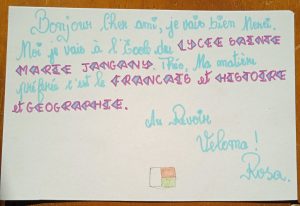 Bonjour Cher ami, je vais bien Merci.
Moi je vais à l'Ecole des LYCEE SAINTE
MARIE JANGANY. Théo, Ma matière
préférée c'est le FRANCAIS et HISTOIRE
et GEOGRAPHIE.
Au Revoir
Veloma !
Rosa.